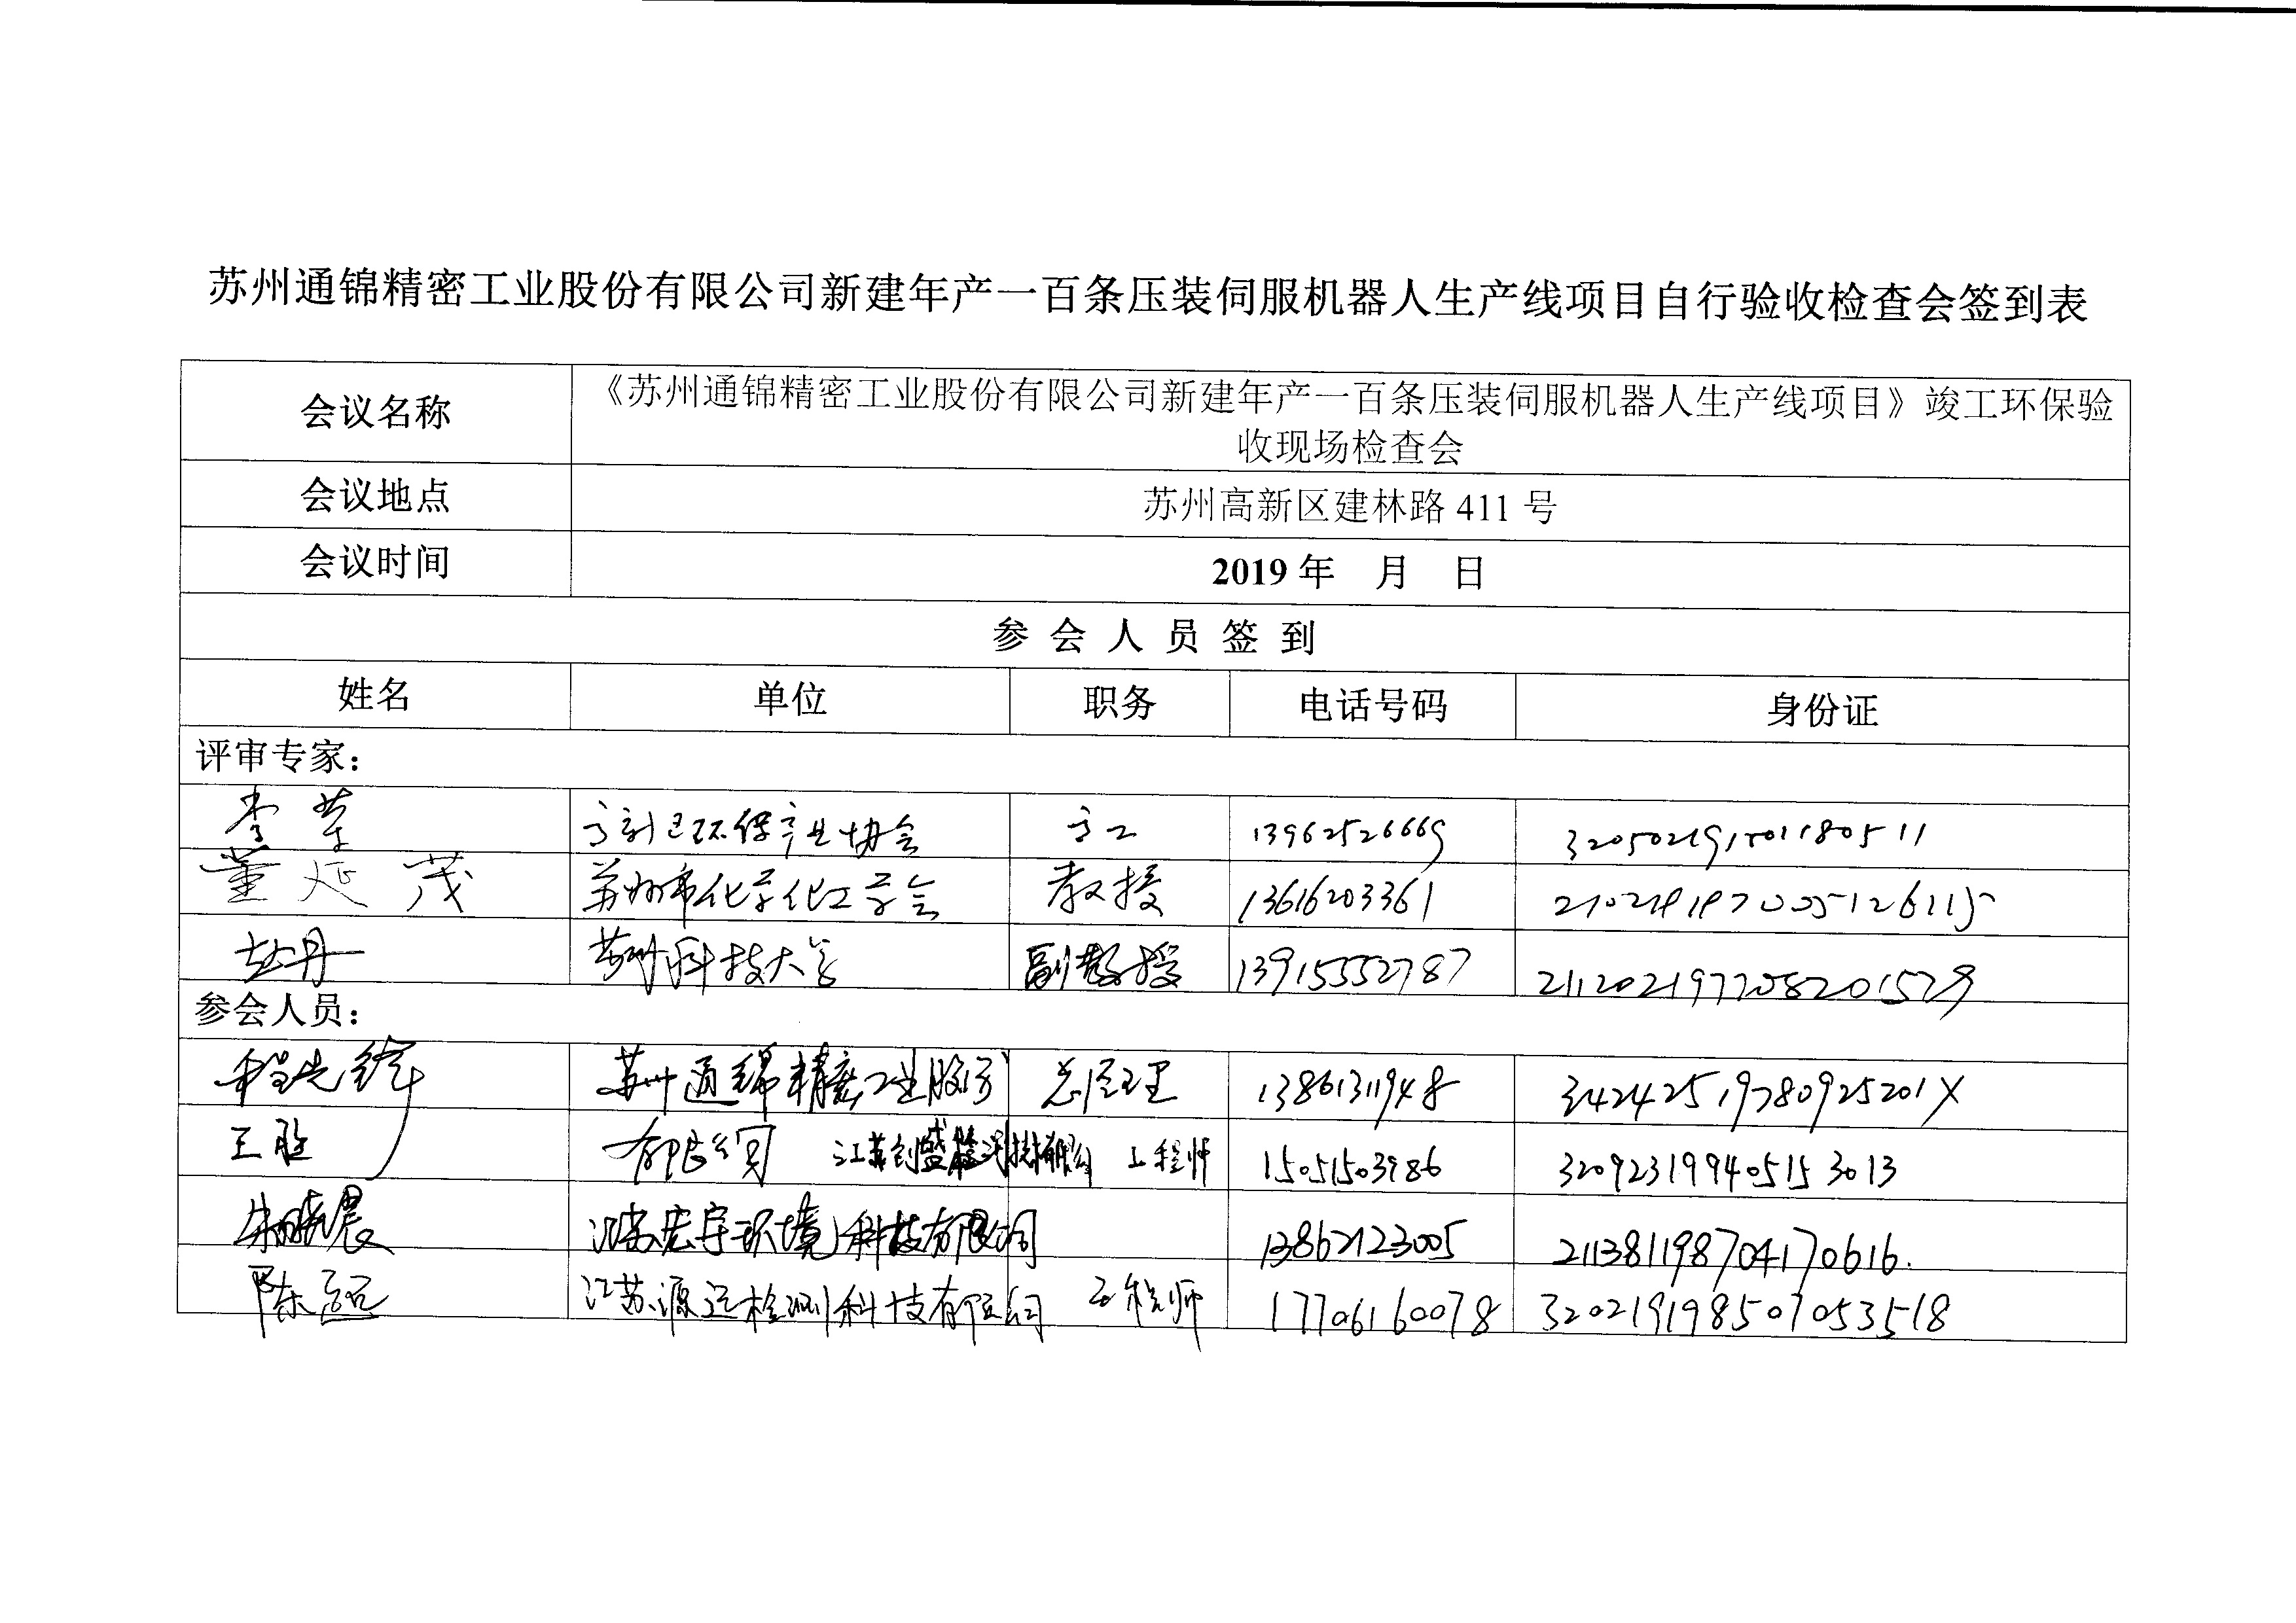 苏州通锦精密工业股份有限公司新建年产一百条压装伺服机器人生产线项目自行验收检查会签到表
会议名称 《苏州通锦精密工业股份有限公司新建年产一百条压装伺服机器人生产线项目》竣工环保验
收现场检查会
会议地点 苏州高新区建林路 411 号
会议时间 2019 年 月 日
参 会 人 员 签 到
姓名 单位 职务 电话号码 身份证
评审专家：
李 高新区环保产业协会 高工 13962526669
董延茂 苏州市化学化工学会 教授 13616203361
丹 苏州科技大学 副教授 13915552787 211202197708201579
参会人员：
程先锋 苏州通锦精密工业股份 总经理 13861311948 34242519780925201X
王胜 有限公司 江苏创盛检测技术有限公司 工程师 15051503986 320923199405153013
朱晓晨 江苏宏宇环境科技有限公司 13862123005 211381198704170616.
陈远 江苏源远检测科技有限公司 工程师 17706160078 320219198507053518